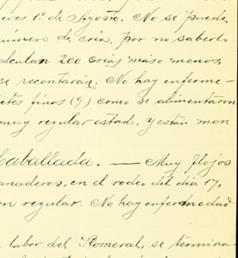 eves 1º de Agosto. No se puede
número de cría, por no saberlo
alculan 200 crías más o menos,
se recontarán. No hay enferme-
etes finos (9) como se alimentaron
muy regular estad, y están mon
Caballada. — Muy flojos
anaderos, en el rodeo del día 17,
en regular. No hay enfermedad
labor del Romeral, se termina